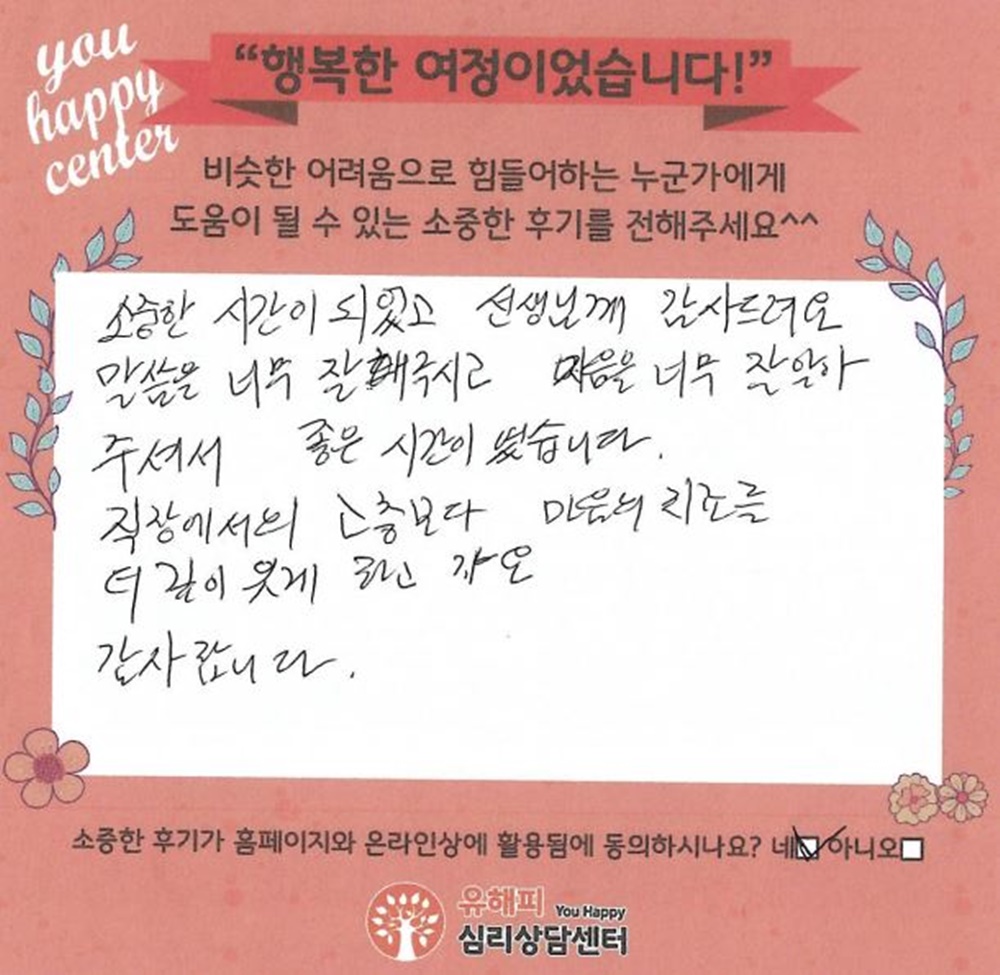 you
happy
center
“행복한 여정이었습니다!”
비슷한 어려움으로 힘들어하는 누군가에게
도움이 될 수 있는 소중한 후기를 전해주세요^^
소중한 시간이 되었고 선생님께 감사드려요
말씀을 너무 잘해주시고 마음을 너무 잘알아
주셔서 좋은 시간이 됬습니다.
직장에서의 고충보다 마음의 치료를
더 깊이 웃게 하고 가요
감사합니다.
소중한 후기가 홈페이지와 온라인상에 활용됨에 동의하시나요? 네 아니오
유해피 You Happy
심리상담센터